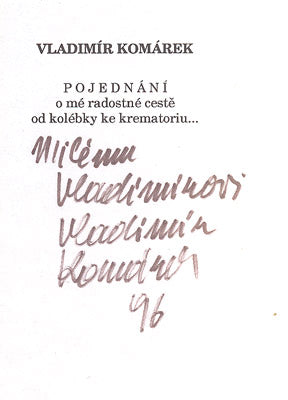 VLADIMÍR KOMÁREK
POJEDNÁNÍ
o mé radostné cestě
od kolébky ke krematoriu...
Milému
Vladimírovi
Vladimír
Komárek
96